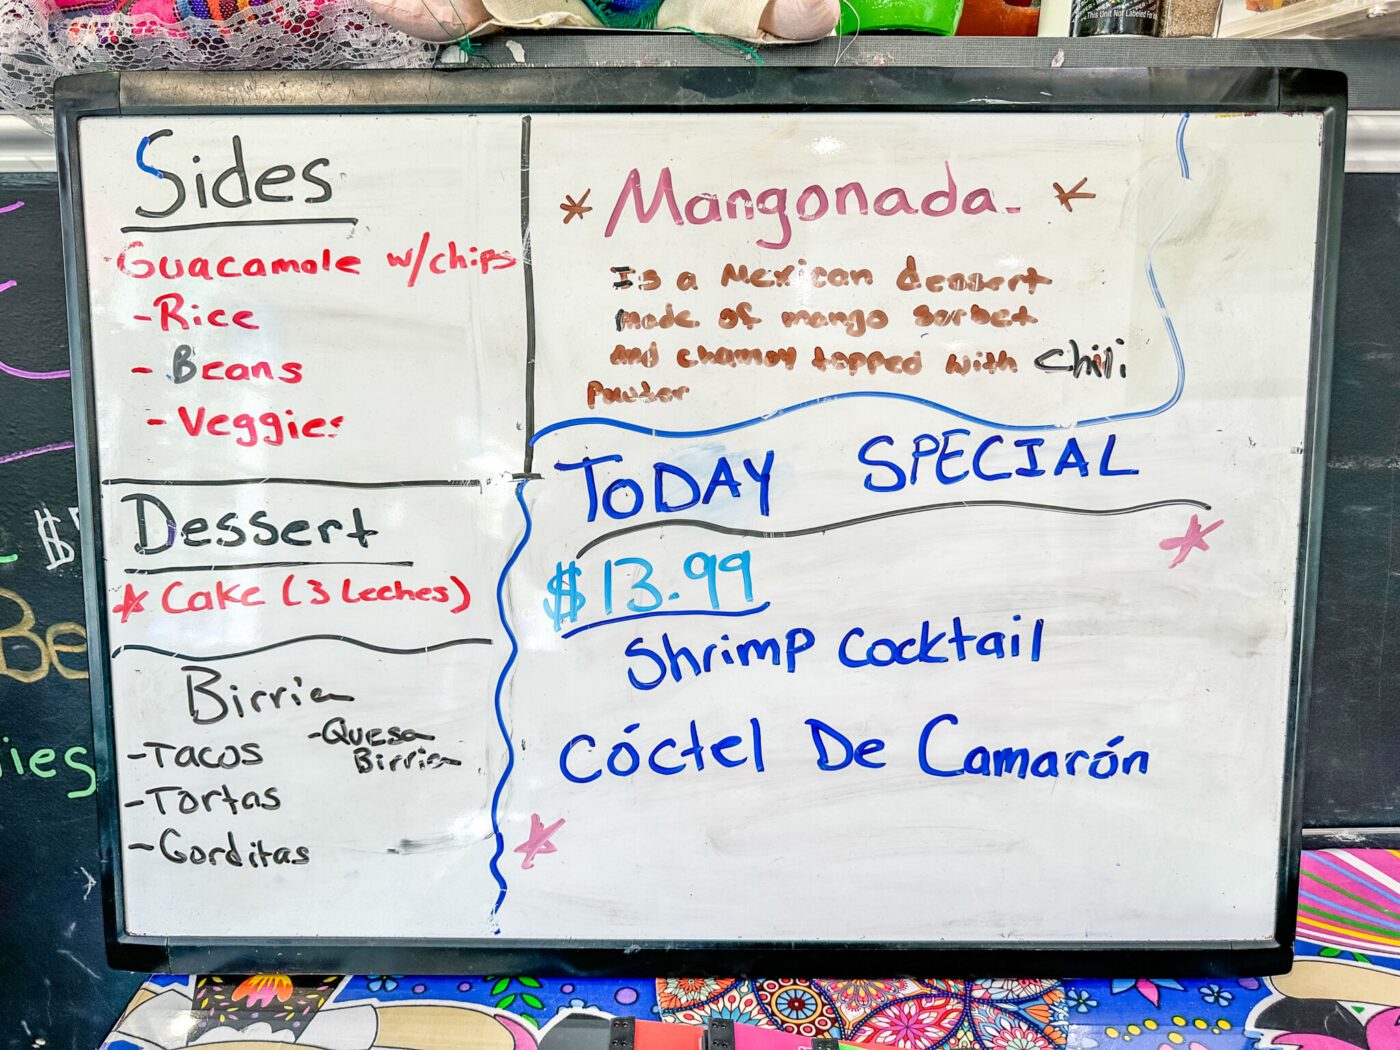 Sides
Guacamole w/chips
-Rice
- Beans
- Veggies
Dessert
* Cake (3 Leches)
Birria
-Tacos
-Quesa
Birria
-Tortas
-Gorditas
* Mangonada. *
Is a Mexican dessert
made of mango sorbet
and chamoy topped with Chili
Powder
ToDAY SPECIAL
$13.99
Shrimp Cocktail
Cóctel De Camarón
This Unit Not Labeled For
$
Be
ies